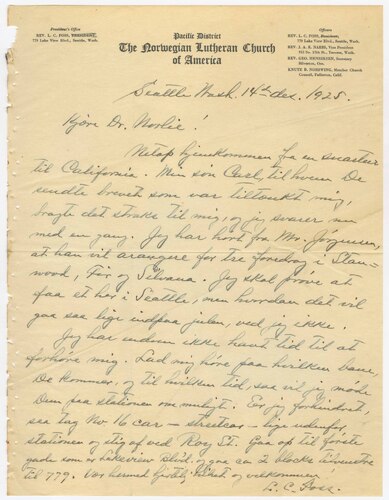 President's Office
REV. L. C. FOSS, PRESIDENT,
779 Lake View Blvd., Seattle, Wash.
Pacific District
The Norwegian Lutheran Church
of America
Officers
REV. L. C. FOSS, President,
779 Lake View Blvd., Seattle, Wash.
REV. J. A. E. NAESS, Vice President
REV. GEO. HENRIKSEN, Secretary
Silverton, Ore.
KNUTE B. NORSWING, Member Church
Council, Fullerton, Calif.
Seattle Wash. 14th des. 1925.
Kjære Dr. Norlie!
Netop hjemkommen fra en snartur
til California. Min søn Carl, til hvem De
sendte brevet som var tiltænkt mig,
bragte det straks til mig, og jeg svarer nu
med en gang. Jeg har hørt fra Mr. Jørgensen,
at han vil arangere for tre foredrag i Stan-
wood, Fir og Silvana. Jeg skal prøve at
faa et her i Seattle, men hvordan det vil
gaa saa lige indpaa julen, ved jeg ikke.
Jeg har endnu ikke havt tid til at
forhøre mig. Lad mig høre paa hvilken bane
De kommer, og til hvilken tid, saa vil jeg møde
Dem paa stationen om muligt. Er jeg forhindret,
saa tag No 16 car – streetcar – lige udenfor
stationen og stig af ved Roy St. Gaa op til første
gade som er Lakeview Blvd. og gaa ca 2 blocks
til 779. Vær hermed hjertelig hilset og velkommen
L. C. Foss.